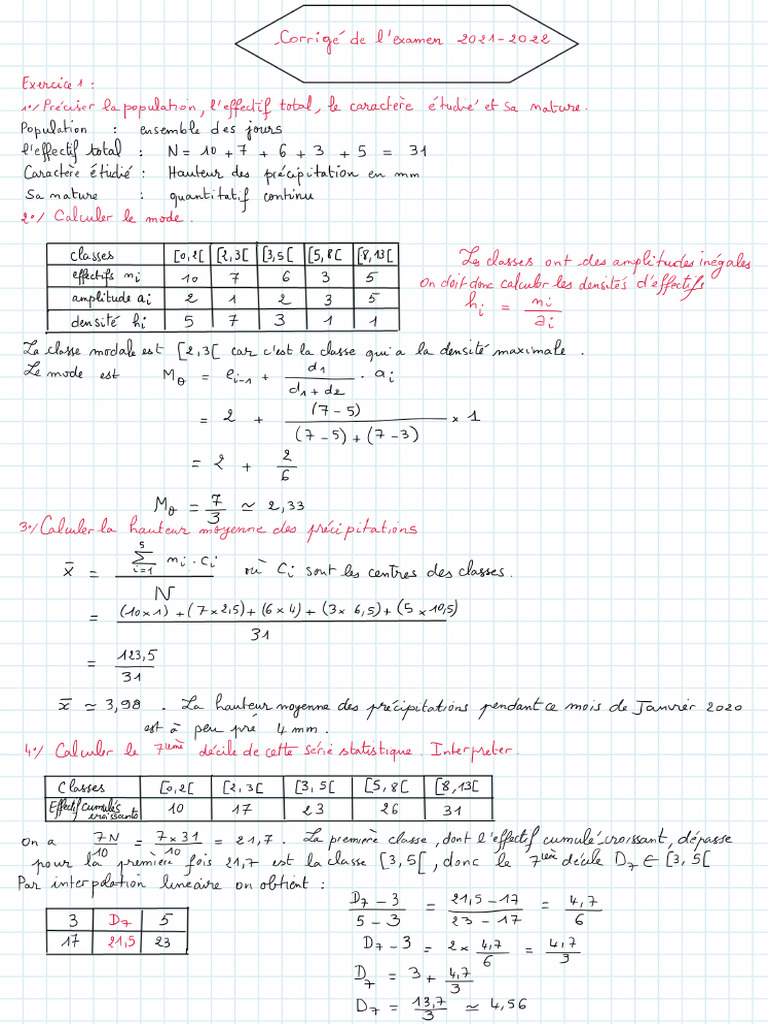 Corrigé de l'examen 2021-2022
Exercice 1 :
1°/ Préciser la population, l'effectif total, le caractère étudié et sa nature.
Population : ensemble des jours
l'effectif total : N = 10 + 7 + 6 + 3 + 5 = 31
Caractère étudié : Hauteur des précipitation en mm
Sa nature : quantitatif continu
2°/ Calculer le mode.
classes [0,2[ [2,3[ [3,5[ [5,8[ [8,13[
effectifs ni 10 7 6 3 5
amplitude ai 2 1 2 3 5
densité hi 5 7 3 1 1
Les classes ont des amplitudes inégales
On doit donc calculer les densités d'effectifs
hi = ni / ai
La classe modale est [2,3[ car c'est la classe qui a la densité maximale.
Le mode est Mo = ei-1 + d1 / (d1 + d2) . ai
= 2 + (7-5) / ((7-5) + (7-3)) × 1
= 2 + 2/6
Mo = 7/3 ≃ 2,33
3°/ Calculer la hauteur moyenne des précipitations
x̄ = 5 Σ i=1 ni . ci / N où Ci sont les centres des classes.
= (10×1) + (7×2,5) + (6×4) + (3×6,5) + (5×10,5) / 31
= 123,5 / 31
x̄ ≃ 3,98 . La hauteur moyenne des précipitations pendant ce mois de Janvier 2020
est à peu pré 4 mm.
4°/ Calculer le 7ième décile de cette série statistique. Interpreter.
Classes [0,2[ [2,3[ [3,5[ [5,8[ [8,13[
Effectif cumulés croissants 10 17 23 26 31
On a 7N/10 = 7×31/10 = 21,7 . La première classe, dont l'effectif cumulé croissant, dépasse
pour la première fois 21,7 est la classe [3,5[, donc le 7ième décile D7 ∈ [3,5[
Par interpolation lineaire on obtient :
3 D7 5
17 21,5 23
D7 - 3 / 5 - 3 = 21,5 - 17 / 23 - 17 = 4,7 / 6
D7 - 3 = 2 × 4,7/6 = 4,7/3
D7 = 3 + 4,7/3
D7 = 13,7/3 ≃ 4,56